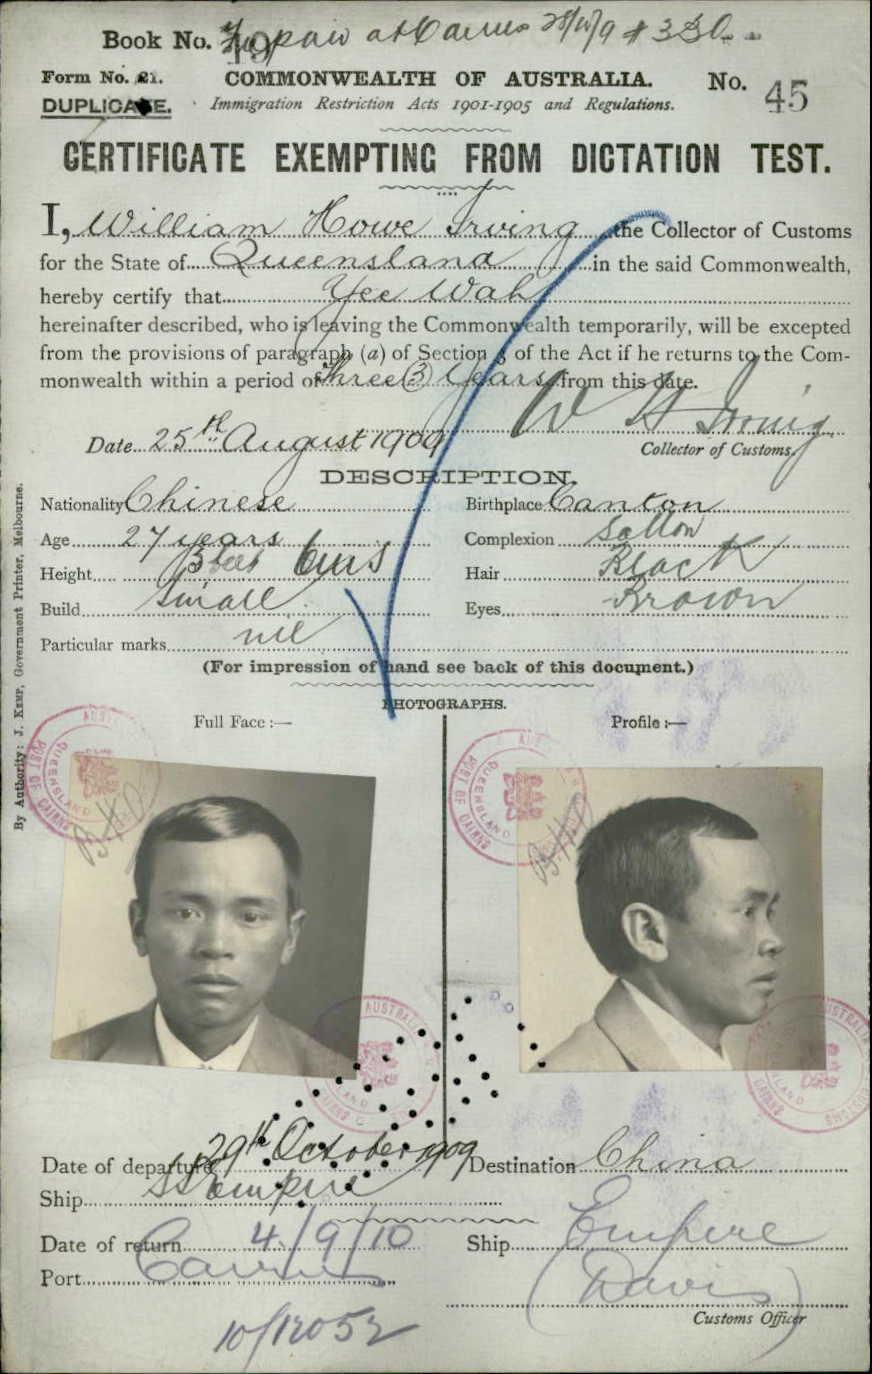 Book No. 19 paid at Cairns 28/10/9 # 330
Form No. 21. COMMONWEALTH OF AUSTRALIA. No. 45
DUPLICATE. Immigration Restriction Acts 1901-1905 and Regulations.
CERTIFICATE EXEMPTING FROM DICTATION TEST.
I, William Howe Irving the Collector of Customs
for the State of Queensland in the said Commonwealth,
hereby certify that Yee Wah
hereinafter described, who is leaving the Commonwealth temporarily, will be excepted
from the provisions of paragraph (a) of Section 3 of the Act if he returns to the Com-
monwealth within a period of Three (3) Years from this date.
W H Irving
Date 25th August 1909 Collector of Customs.
DESCRIPTION.
Nationality Chinese Birthplace Canton
Age 27 years Complexion Sallow
Height 5 feet 6 ins Hair Black
Build Small Eyes Brown
Particular marks nil
(For impression of hand see back of this document.)
PHOTOGRAPHS.
Full Face :— Profile :—
AUSTRALIA PORT OF CAIRNS QUEENSLAND
AUSTRALIA PORT OF CAIRNS QUEENSLAND
AUSTRALIA CAIRNS
AUSTRALIA CUSTOMS CAIRNS
Date of departure 29th October 1909 Destination China
Ship SS Empire
Date of return 4/9/10 Ship Empire
Port Cairns (Davis)
Customs Officer
10/12052
By Authority: J. KEMP, Government Printer, Melbourne.